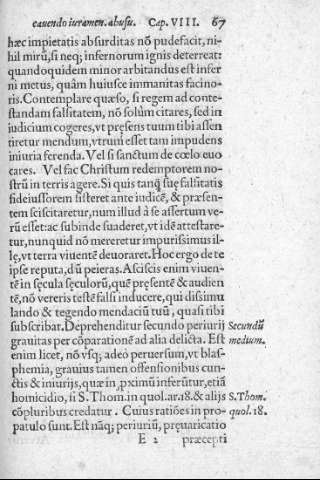 cauendo iuramen. abusu. Cap. VIII. 67
hæc impietatis absurditas nõ pudefacit, ni-
hil mirũ, si neq; infernorum ignis deterreat:
quandoquidem minor arbitandus est infer
ni metus, quàm huiusce immanitas facino-
ris. Contemplare quæso, si regem ad conte-
standam falsitatem, nõ solùm citares, sed in
iudicium cogeres, vt pręsens tuum tibi assen
tiretur mendum, vtrum esset tam impudens
iniuria ferenda. Vel si sanctum de cœlo euo
cares. Vel fac Christum redemptorem no-
strũ in terris agere. Si quis tanq̃ suę falsitatis
fideiussorem sisteret ante iudicẽ, & præsen-
tem sciscitaretur, num illud à se assertum ve-
rũ esset: ac subinde suaderet, vt idẽ attestare-
tur, nunquid nõ mereretur impurissimus il-
lę, vt terra viuentẽ deuoraret. Hoc ergo de te
ipse reputa, dũ peieras. Asciscis enim viuen-
tẽ in sęcula sęculorũ, quẽ pręsentẽ & audien
tẽ, nõ vereris testẽ falsi inducere, qui dissimu
lando & tegendo mendaciũ tuũ, quasi tibi
subscribat. Deprehenditur secundo periurij
grauitas per cõparationẽ ad alia delicta. Est
enim licet, nõ vsq; adeò peruersum, vt blas-
phemia, grauius tamen offensionibus cun-
ctis & iniurijs, quæ in ,pximũ inferũtur, etiã
homicidio, si S. Thom. in quol. ar. 18. & alijs
cõpluribus credatur. Cuius ratiões in pro-
patulo sunt. Est nãq; periuriũ, pręuaricatio
E 2 præcepti
Secundũ
medium.
S. Thom.
quol. 18.